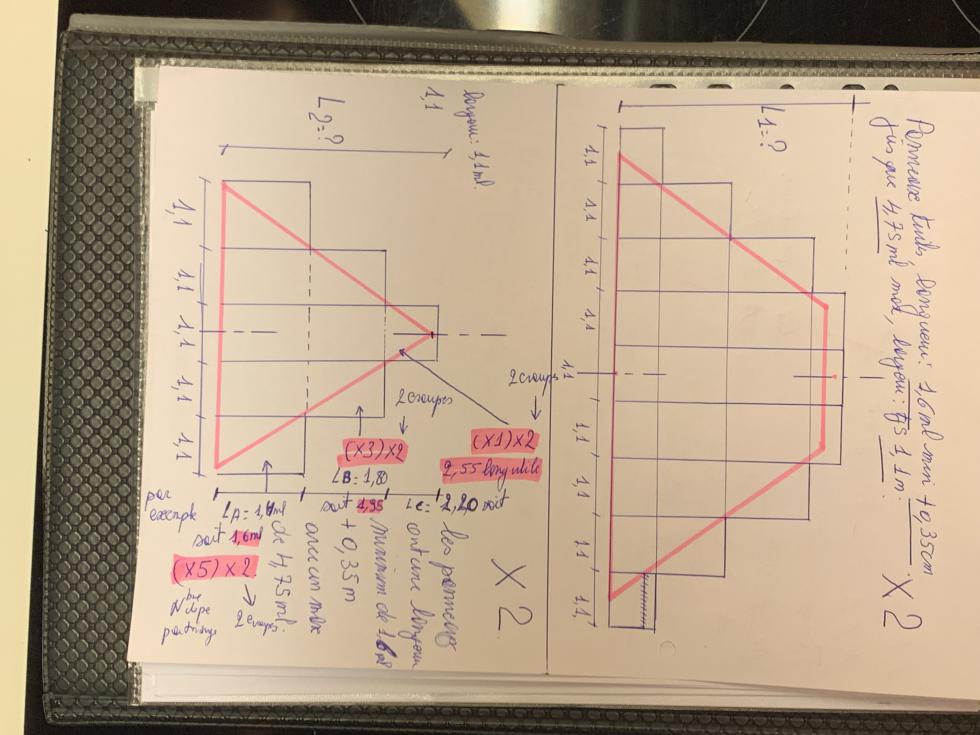 Panneaux tuile, longueur: 1,6ml min + 0,35cm
jusque 4,75ml max, largeur: 1,1m.
X 2
L1=?
1,1
1,1
1,1
1,1
1,1
1,1
1,1
1,1
1,1
largeur: 1,1ml.
1,1
L2=?
1,1
1,1
1,1
1,1
1,1
2 croupes
(X1)X2
2,55 long utile
2 croupes
(X3)X2
LB= 1,80
soit 1,95
LC= 2,20 soit
par
exemple
LA= 1,4ml
soit 1,6ml
(X5)X2
2 croupes
Nbre
X2
les panneaux
ont une longueur
minimum de 1,6ml
+ 0,35m
avec un max
de 4,75ml.